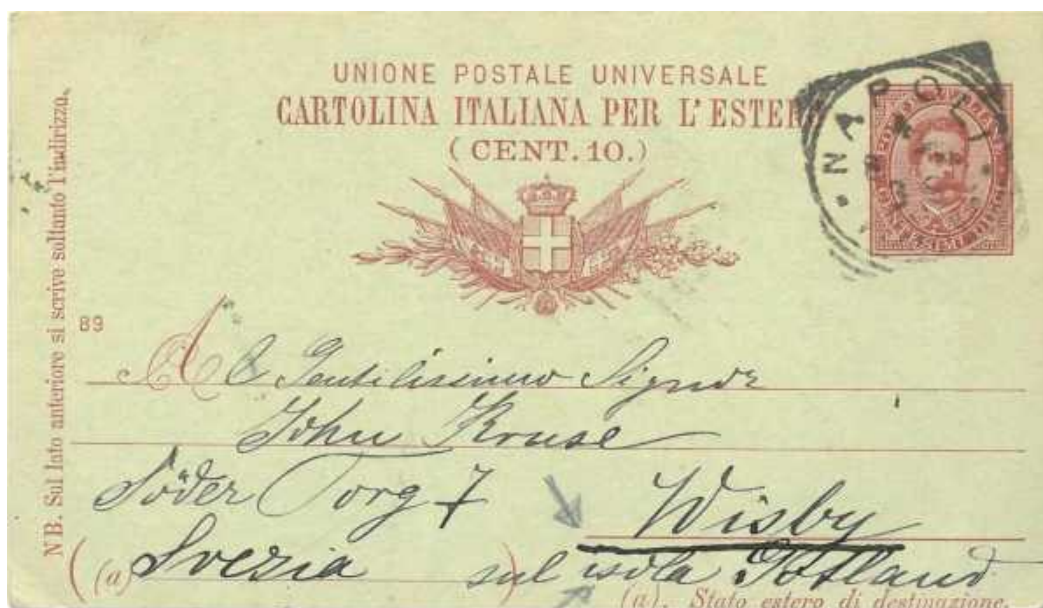 UNIONE POSTALE UNIVERSALE
CARTOLINA ITALIANA PER L'ESTERO
(CENT. 10.)
NAPOLI
NB. Sul lato anteriore si scrive soltanto l'indirizzo.
89
Al Gentilissimo Signor
John Kruse
Söder Torg 7
Wisby
(a) Svezia sul isola Gotland
(a). Stato estero di destinazione.